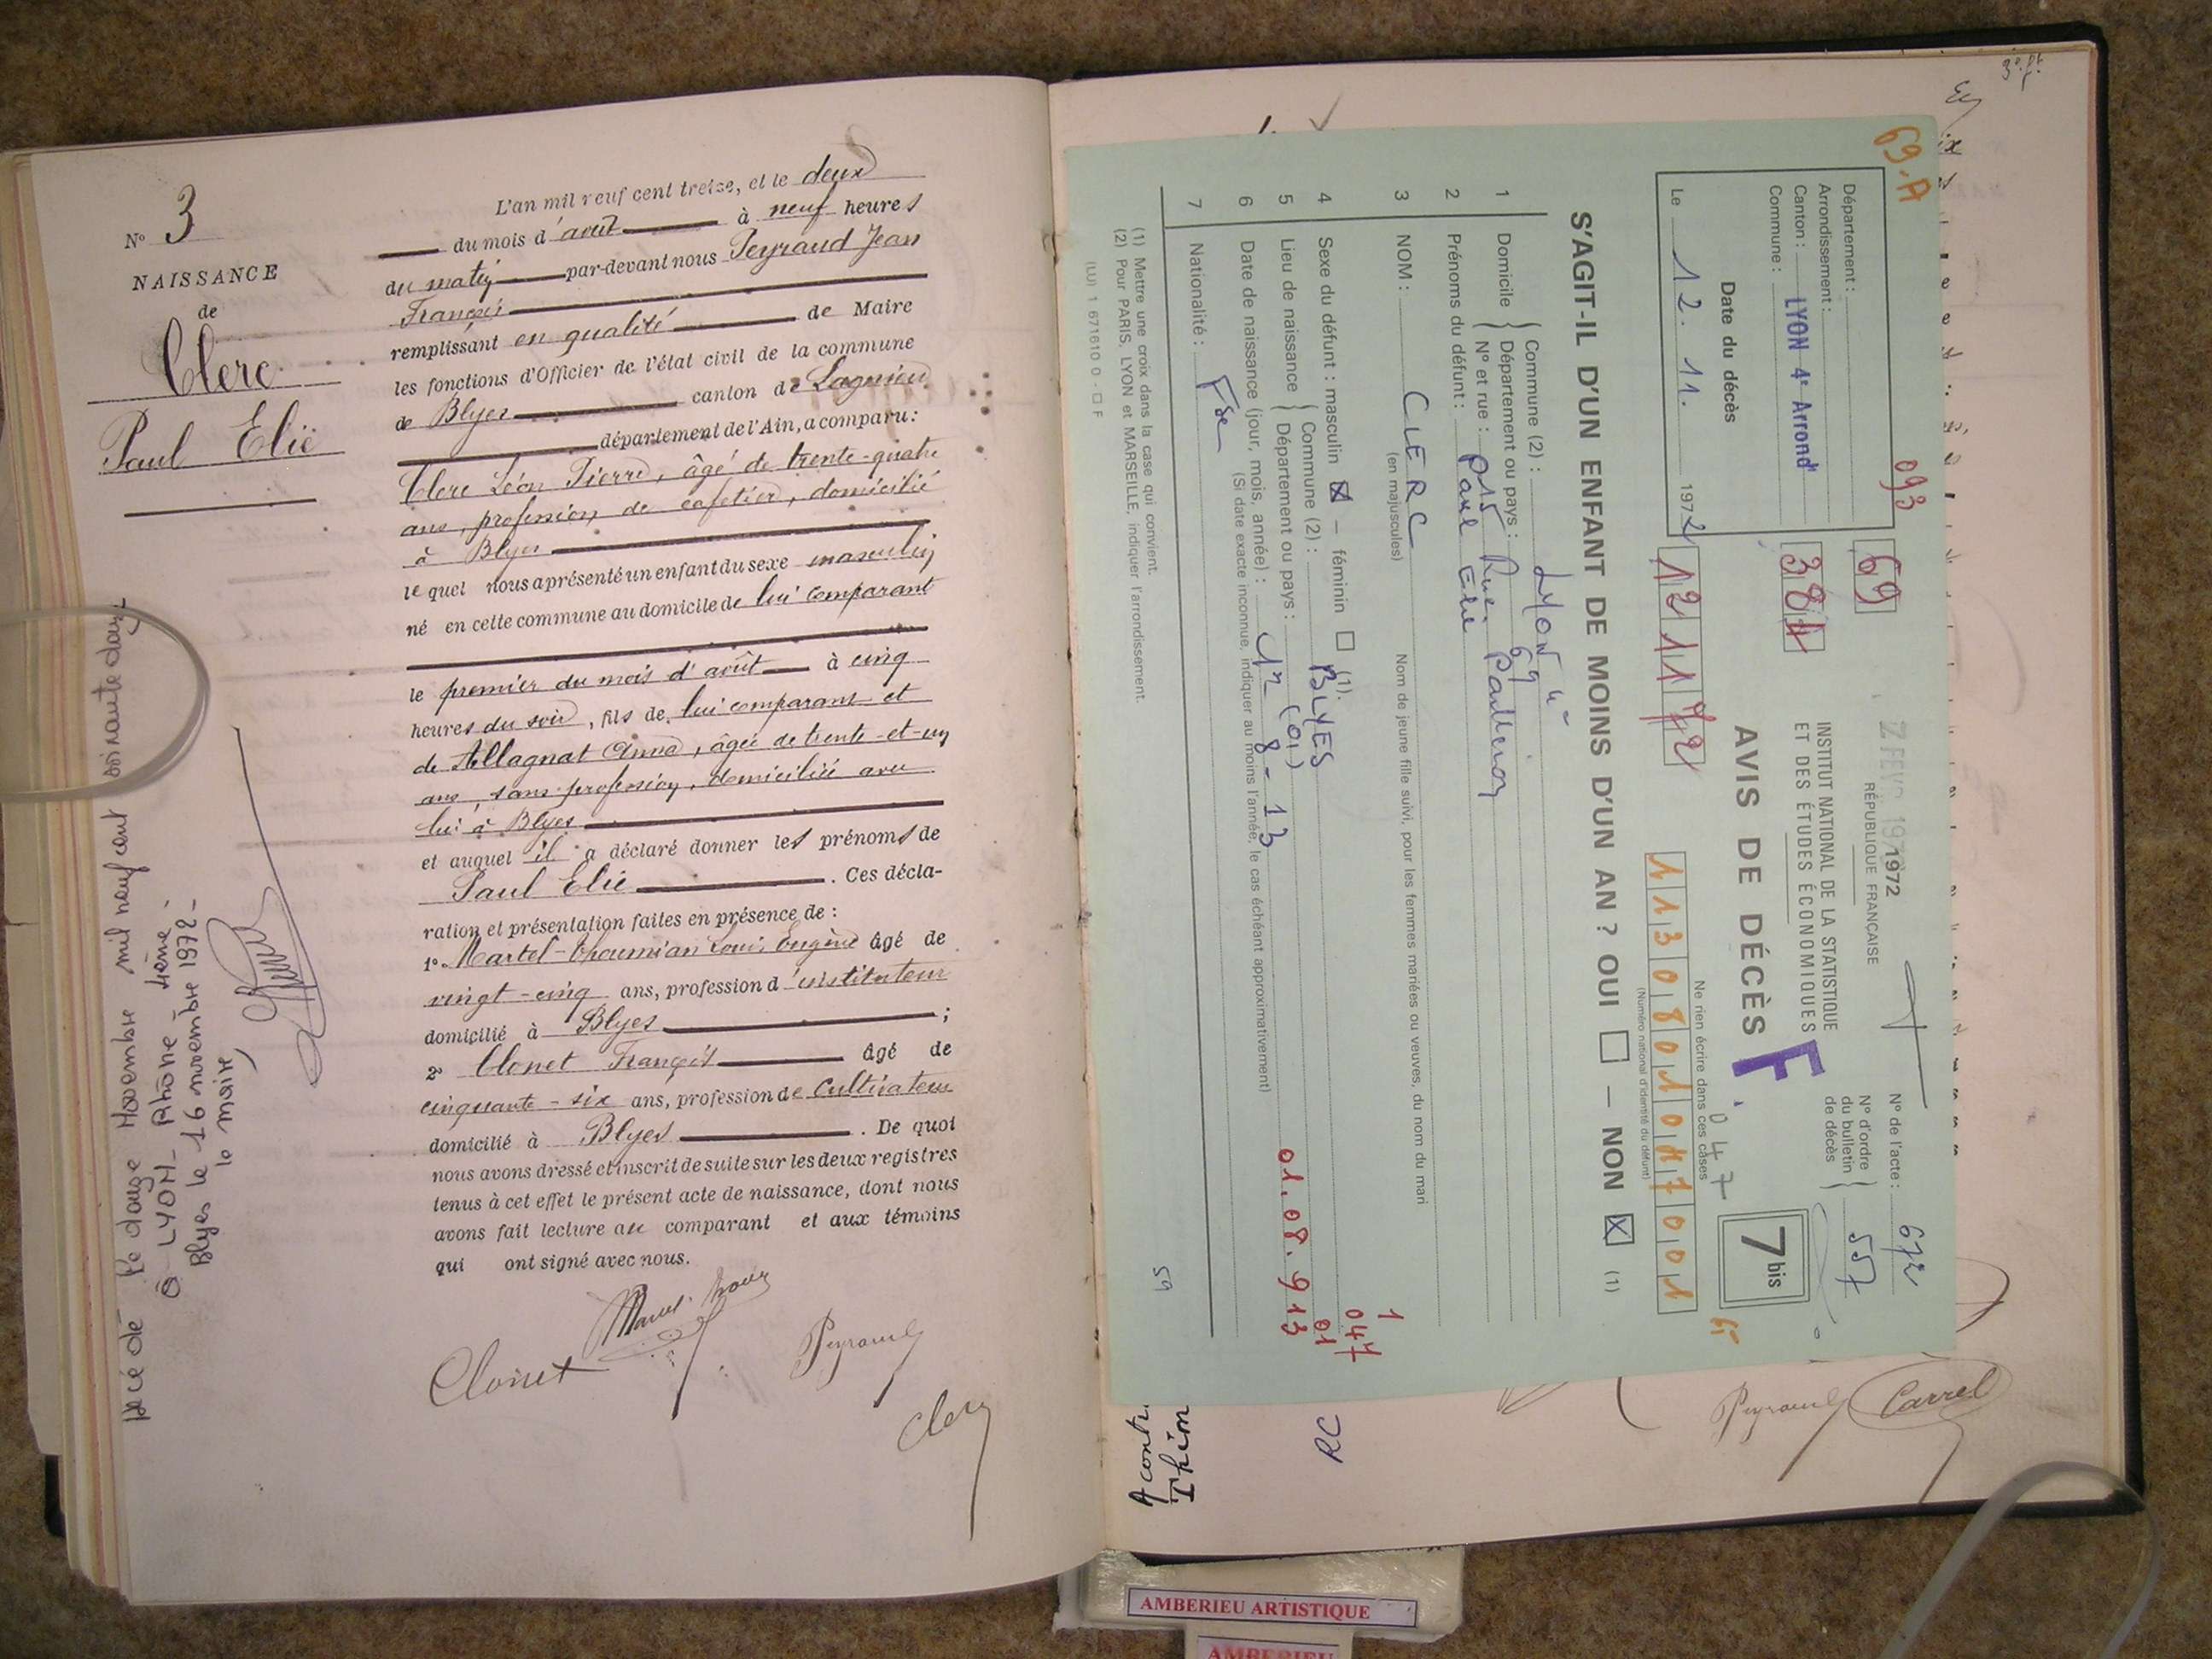 N° 3
NAISSANCE
de
Clerc
Paul Elie
L'an mil neuf cent treize, et le deux
du mois d'août à neuf heures
du matin par-devant nous Peyraud Jean
François
remplissant en qualité de Maire
les fonctions d'Officier de l'état civil de la commune
de Blyes canton de Lagnieu
département de l'Ain, a comparu:
Clerc Léon Pierre, âgé de trente-quatre
ans, profession de cafetier, domicilié
à Blyes
lequel nous a présenté un enfant du sexe masculin
né en cette commune au domicile de lui comparant
le premier du mois d'août à cinq
heures du soir, fils de lui comparant et
de Allagnat Anna, âgée de trente-et-un
ans, sans profession, domiciliée avec
lui à Blyes
et auquel il a déclaré donner les prénoms de
Paul Elie . Ces décla-
ration et présentation faites en présence de :
1° Martel-Thoumian Louis Eugène âgé de
vingt-cinq ans, profession d'instituteur
domicilié à Blyes ;
2° Clonet François âgé de
cinquante-six ans, profession de cultivateur
domicilié à Blyes . De quoi
nous avons dressé et inscrit de suite sur les deux registres
tenus à cet effet le présent acte de naissance, dont nous
avons fait lecture au comparant et aux témoins
qui ont signé avec nous.
Clonet
Peyraud
Clerc
Décédé le douze Novembre mil neuf cent soixante douze
à LYON - Rhône - 4ème -
Blyes le 16 novembre 1972 -
le maire,
69.A
093
Département :
Arrondissement :
Canton : LYON 4e Arrondt
Commune :
Date du décès
Le 12. 11. 1972
69
384
12 11 72
1972
RÉPUBLIQUE FRANÇAISE
INSTITUT NATIONAL DE LA STATISTIQUE
ET DES ÉTUDES ÉCONOMIQUES
AVIS DE DÉCÈS
F
N° de l'acte : 672
N° d'ordre
du bulletin
de décès
557
7 bis
047
Ne rien écrire dans ces cases
1130801047001
(Numéro national d'identité du défunt)
S'AGIT-IL D'UN ENFANT DE MOINS D'UN AN ? OUI □ — NON ☒ (1)
1 Domicile
Commune (2) : LYON 4e
Département ou pays : 69
N° et rue : Rue Pailleron
2 Prénoms du défunt : Paul Elie
3 NOM : CLERC
(en majuscules)
Nom de jeune fille suivi, pour les femmes mariées ou veuves, du nom du mari
4 Sexe du défunt : masculin ☒ — féminin □ (1).
5 Lieu de naissance
Commune (2) : BLYES
Département ou pays : (01)
6 Date de naissance (jour, mois, année) : 1er - 8 - 13
(Si date exacte inconnue, indiquer au moins l'année, le cas échéant approximativement)
7 Nationalité : Fse
1
047
01
01.08.913
59
(1) Mettre une croix dans la case qui convient.
(2) Pour PARIS, LYON et MARSEILLE, indiquer l'arrondissement.
Peyraud
Carrel
AMBERIEU ARTISTIQUE
AMBERIEU